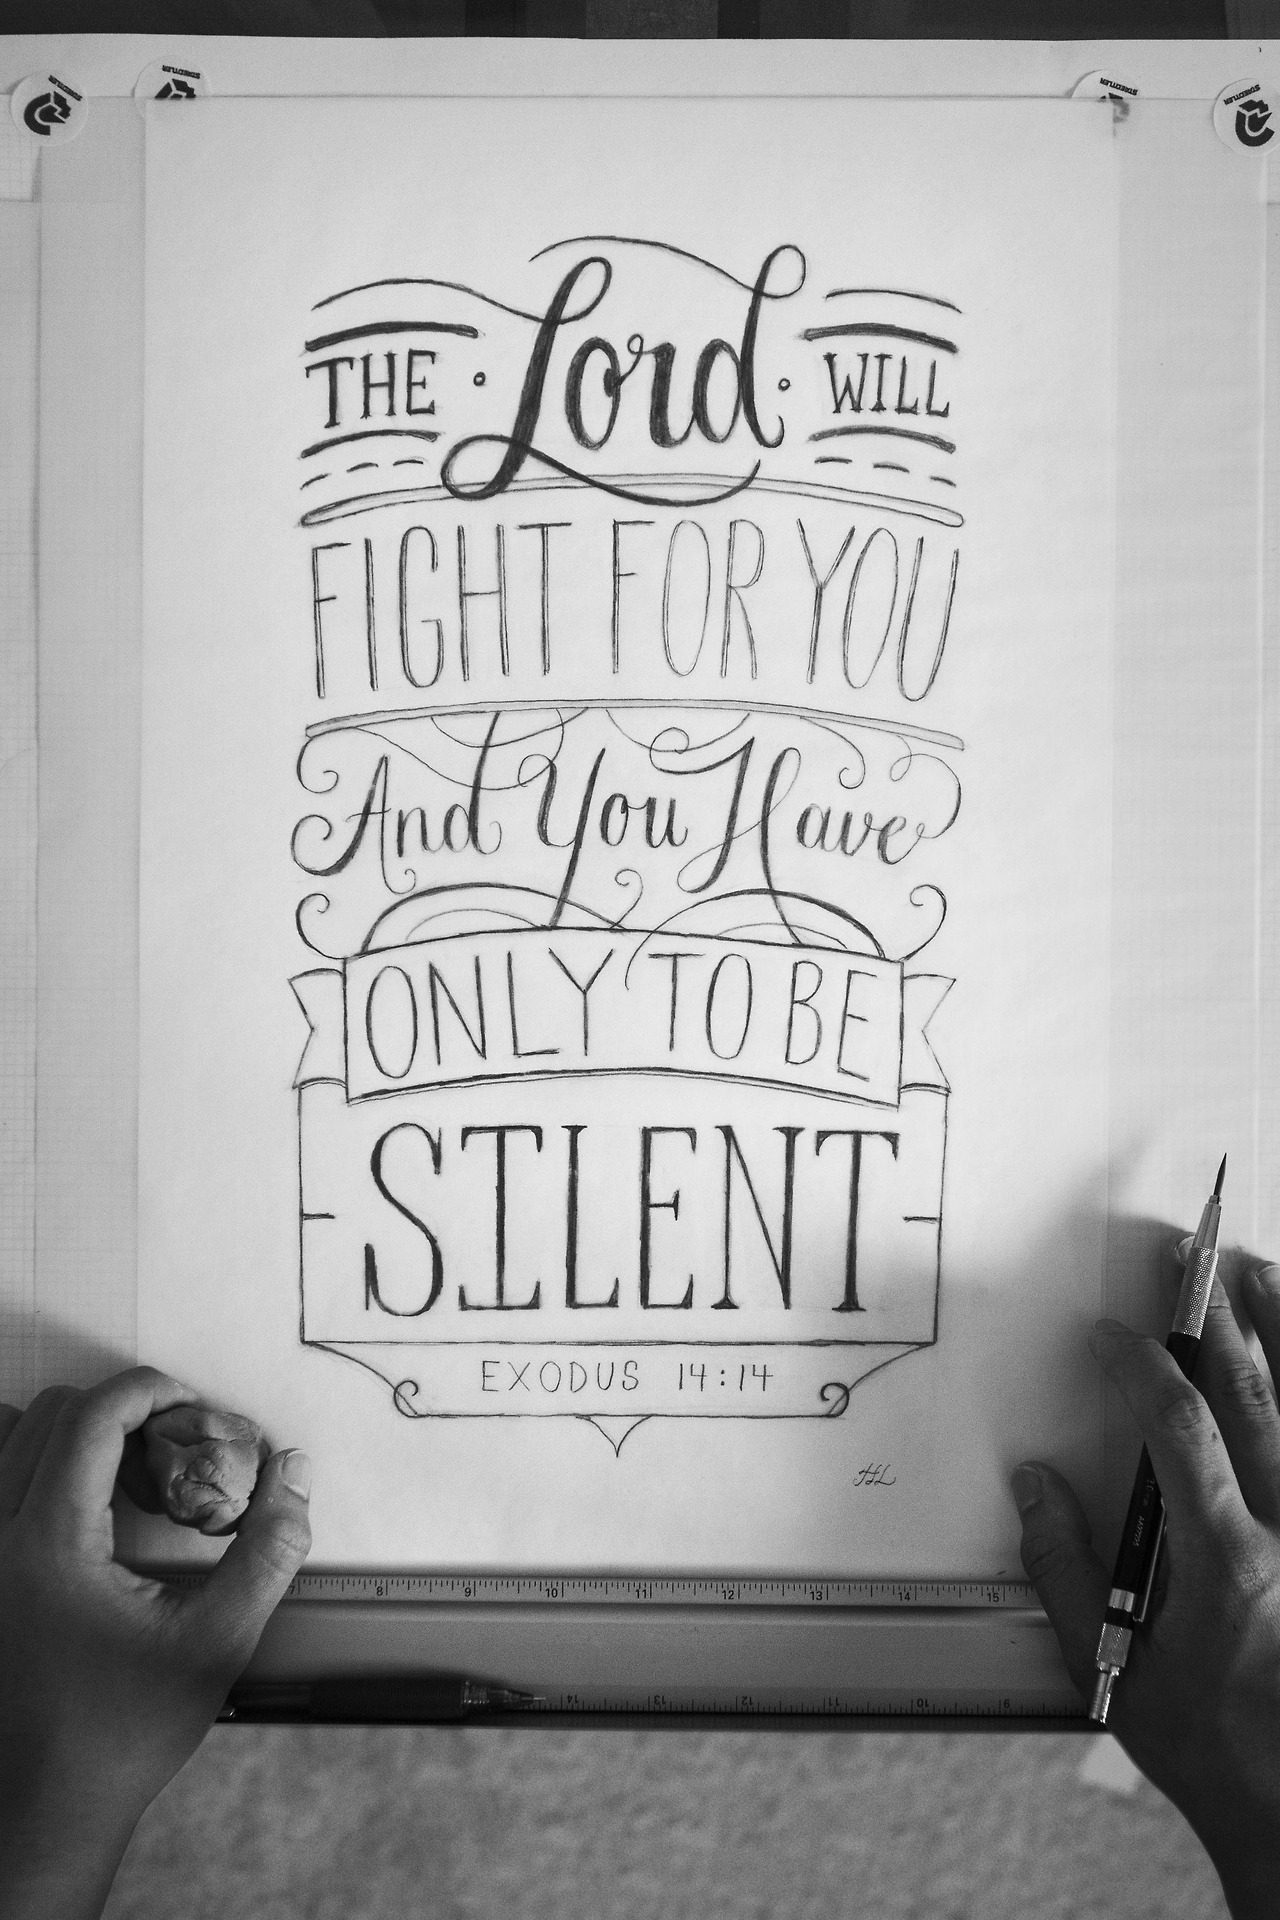 STAEDTLER
STAEDTLER
STAEDTLER
STAEDTLER
THE · Lord · WILL
FIGHT FOR YOU
And You Have
ONLY TO BE
SILENT
EXODUS 14:14
HL
7 8 9 10 11 12 13 14 15
14 13 12 11 10 9